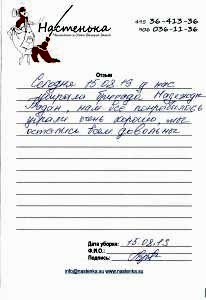 Настенька
495 36-413-36
906 036-11-36
Отзыв
Сегодня 15.08.13 у нас
убирала бригада Надежды
нам всё понравилось
убрали очень хорошо, мы
остались всем довольны
Дата уборки: 15.08.13
Ф.И.О.:
Подпись:
info@nastenka.su www.nastenka.su